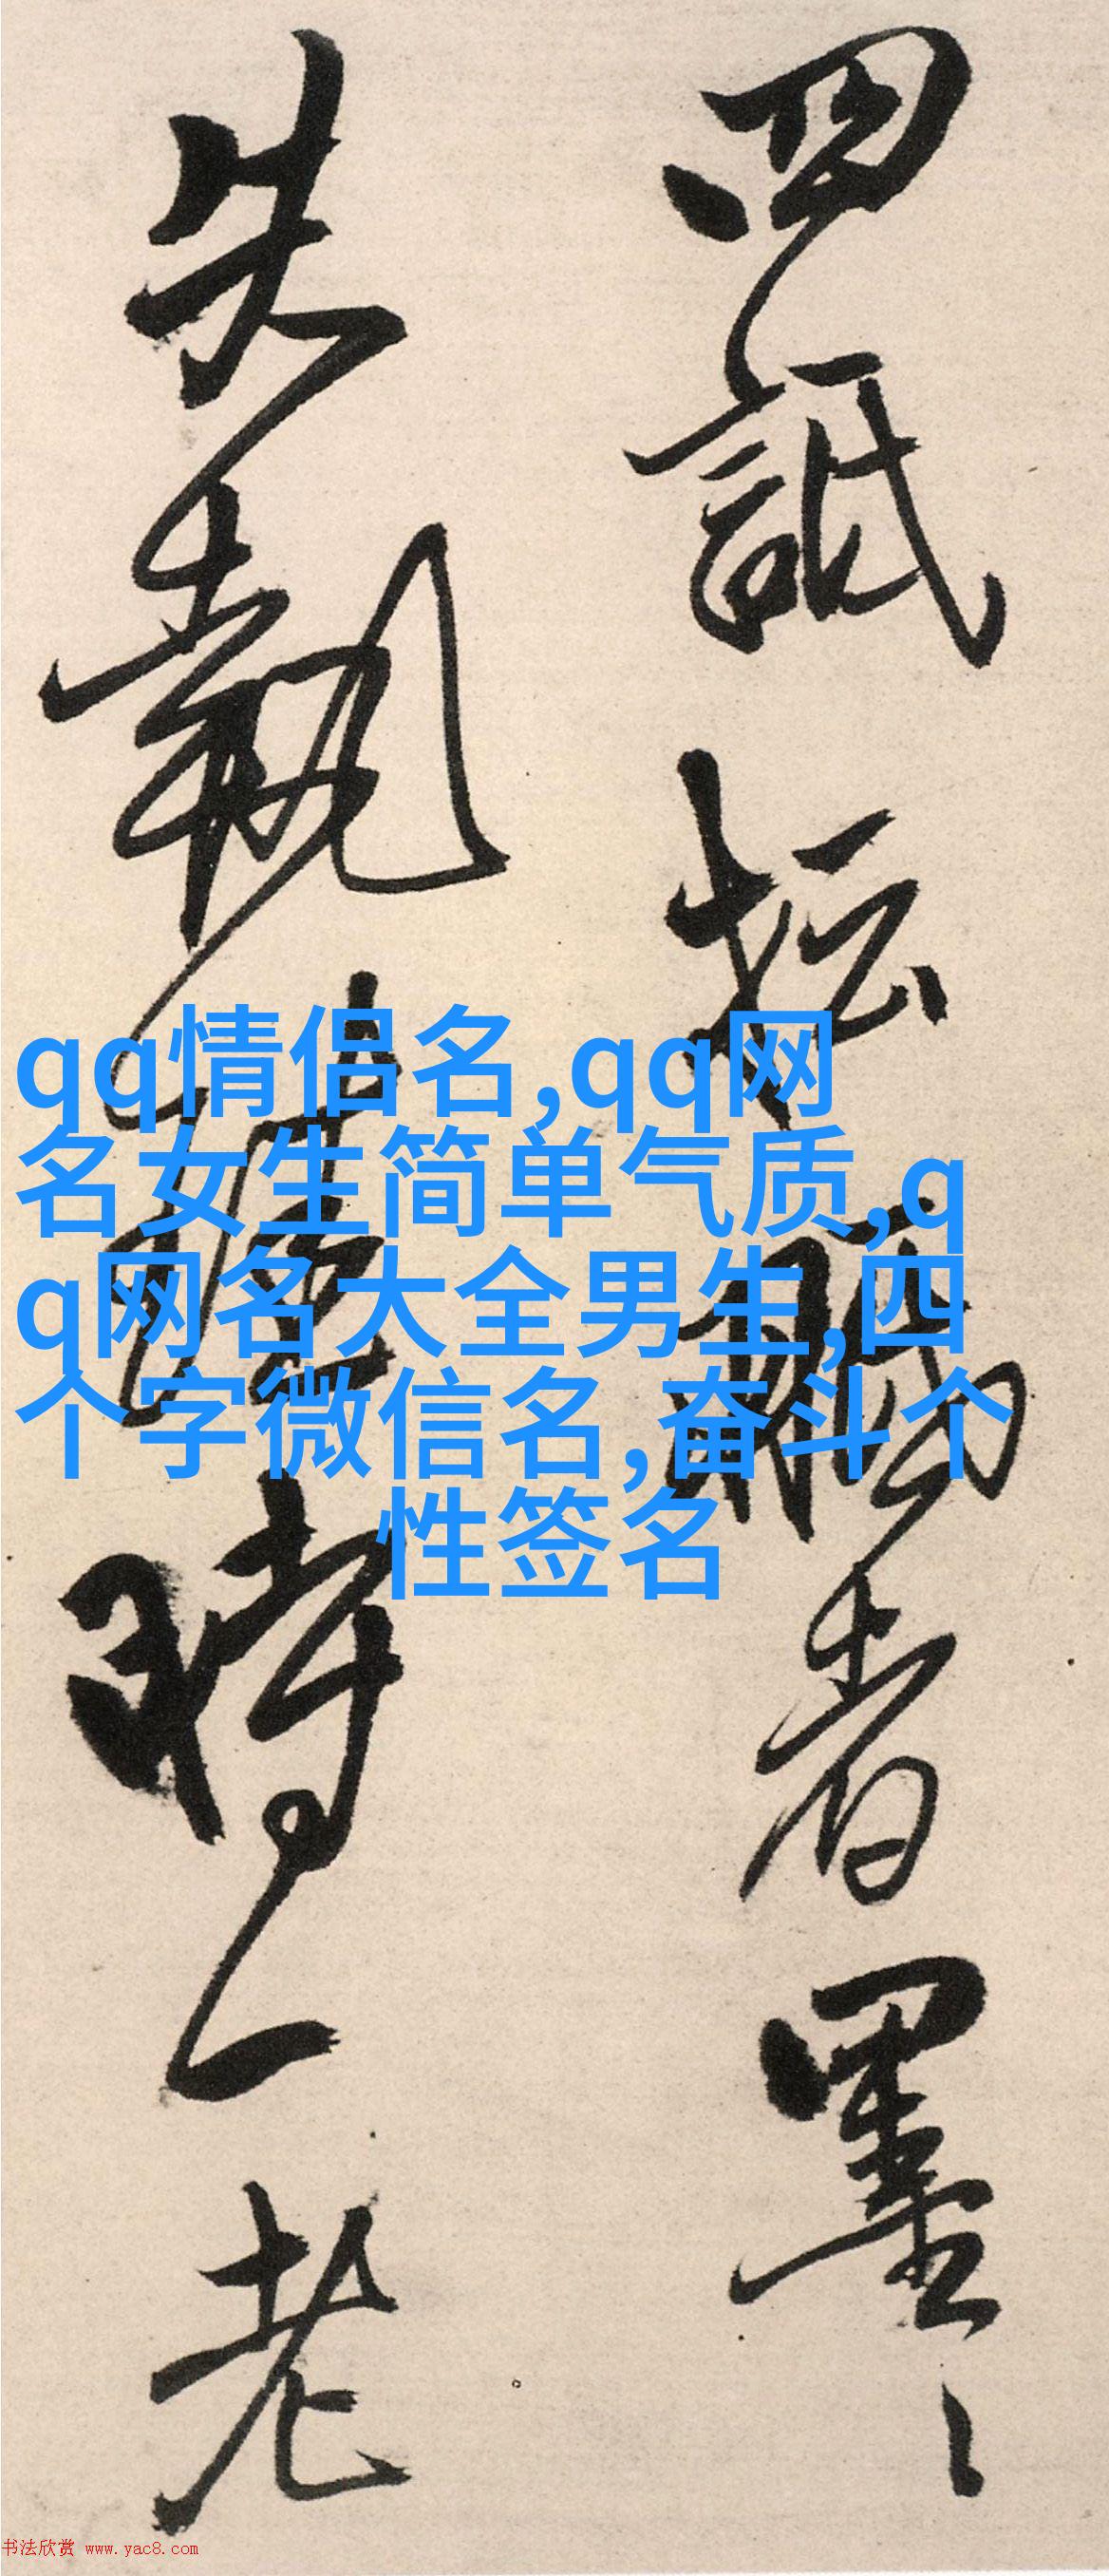 qq情侣名,qq网
名女生简单气质,q
q网名大全男生,四
个字微信名,奋斗个
性签名
詆者墨
失執時一老
书法欣赏 www.yac8.com